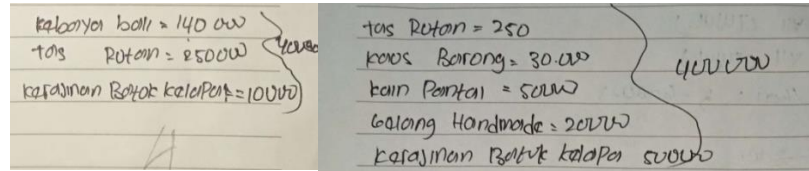 kebaya bali = 140 000
tas Rotan = 250000
400000
kerajinan Batok kelapa = 10000
tas Rotan = 250
kaos Barong = 30.000
400000
kain Pantai = 50000
Gelang Handmade = 20000
kerajinan Batuk kelapa 50000